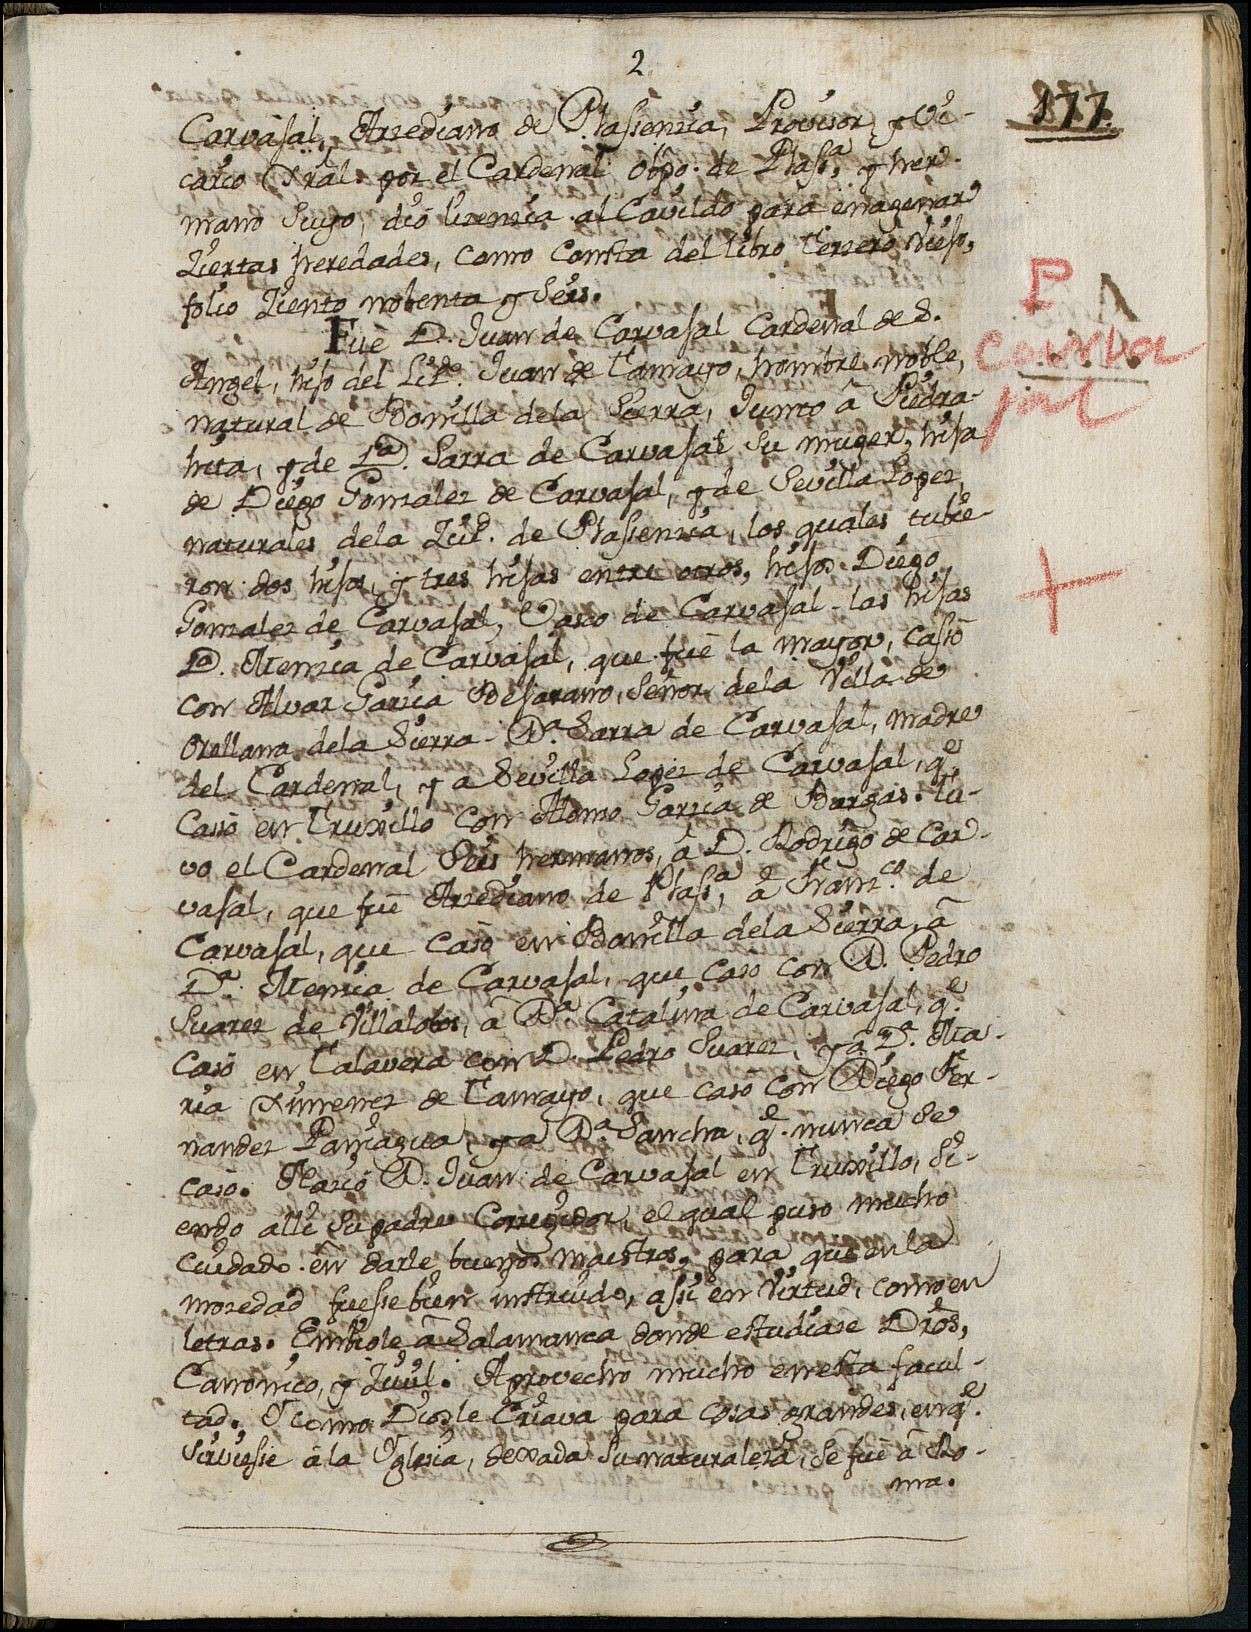 2
177
Carvajal, Arzediano de Plasienzia, Provisor, y Vi-
cario Xral. por el Cardenal Obpo. de Plasª, y her-
mano suyo, dió lizenzia al Cavildo para enagenar
Ziertas heredades, como consta del libro terzero viejo,
folio Ziento nobenta y seis.
Fue D. Juan de Carvajal Cardenal de S.
Angel, hijo del Lizdo. Juan de Tamayo, hombre noble,
natural de Bonilla dela Sierra, Junto â Piedra-
hita, y de Dª. Sarra de Carvajal su muger, hija
de Diego Gonzalez de Carvajal, y de Sevilla Lopez,
naturales dela Ziud. de Plasienzia, los quales tubie-
ron dos hijos, y tres hijas entre otros, hijos Diego
Gonzalez de Carvajal, Vasco de Carvajal - las hijas
Dª. Menzia de Carvajal, que fuê la mayor, casô
con Alvar Garzia Bejarano, Señor dela Villa de
Orellana dela Sierra - Dª. Sarra de Carvajal, madre
del Cardenal, y a Sevilla Lopez de Carvajal, qe.
Casô en Truxillo con Alonso Garzia de Bargas. Tu-
vo el Cardenal seis hermanos, â D. Rodrigo de Car-
vajal, que fuê Arzediano de Plasª, â Franzco. de
Carvajal, que casô en Bonilla dela Sierra, â
Dª. Menzia de Carvajal, que caso con D. Pedro
Suarez de Villalobos, â Dª Catalina de Carvajal, qe.
Casô en Talavera con D. Pedro Suarez, y â Dª. Ma-
ria Ximenez de Tamayo, que casô con Diego Fer-
nandez Paniagua, y a Dª. Sancha, qe. nunca se
caso. Nazió D. Juan de Carvajal en Truxillo, si-
endo alli su padre Corregidor, el qual puso mucho
cuidado en darle buenos maestros, para que en la
mozedad fuesse bien instruido, assi en Virtud, como en
letras. Embiole â Salamanca donde estudiase Dros,
Cannonico, y Zivil. Aprovecho mucho en esta facul-
tad. Y como Dios le Criava para cosas grandes, en qe.
Sirviesse â la Yglesia, dexada su naturaleza, se fuê â Ro-
ma.
P
Carva
jal